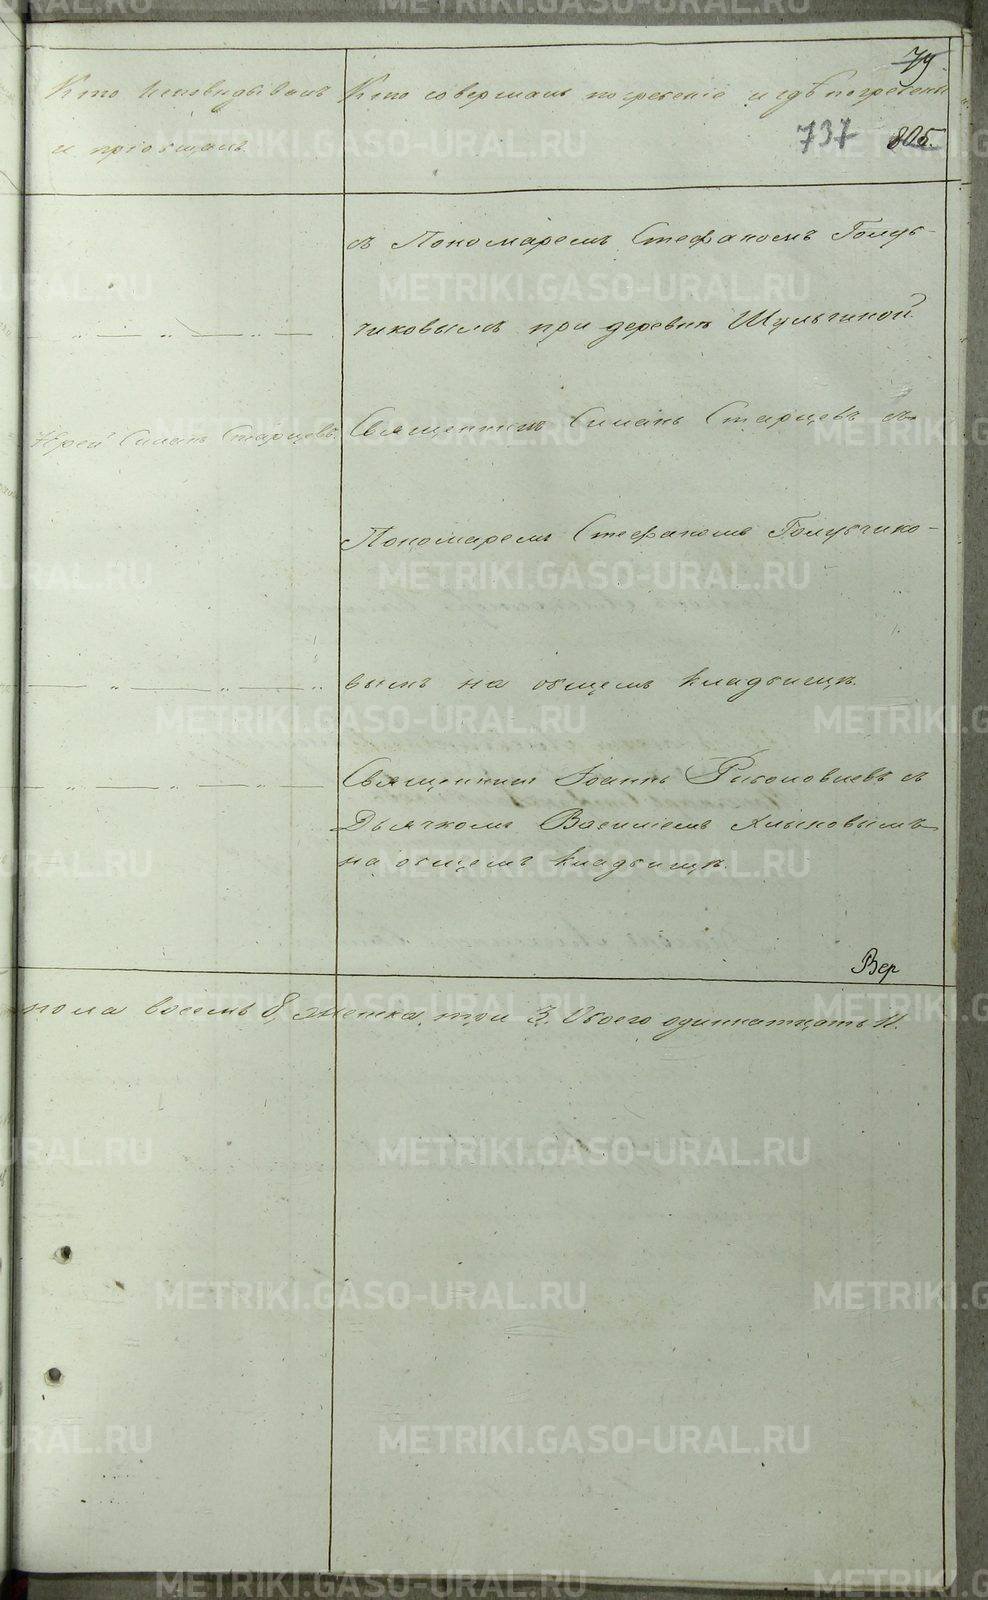 79.
Кто исповѣдывалъ Кто совершалъ погребеніе и гдѣ погребены
и пріобщалъ
737 805.
съ Пономаремъ Стефаномъ Голуб-
чиковымъ при деревнѣ Шульгиной.
Іерей Симанъ Старцевъ. Священникъ Симанъ Старцевъ съ
Пономаремъ Стефаномъ Голубчико-
вымъ на общемъ кладбищѣ.
Священникъ Іоаннъ съ
Дьячкомъ Василіемъ Клыковымъ
на общемъ кладбищѣ.
Вер
пола восемь 8, женска три 3. Обоего одиннатцать 11.
METRIKI.GASO-URAL.RU